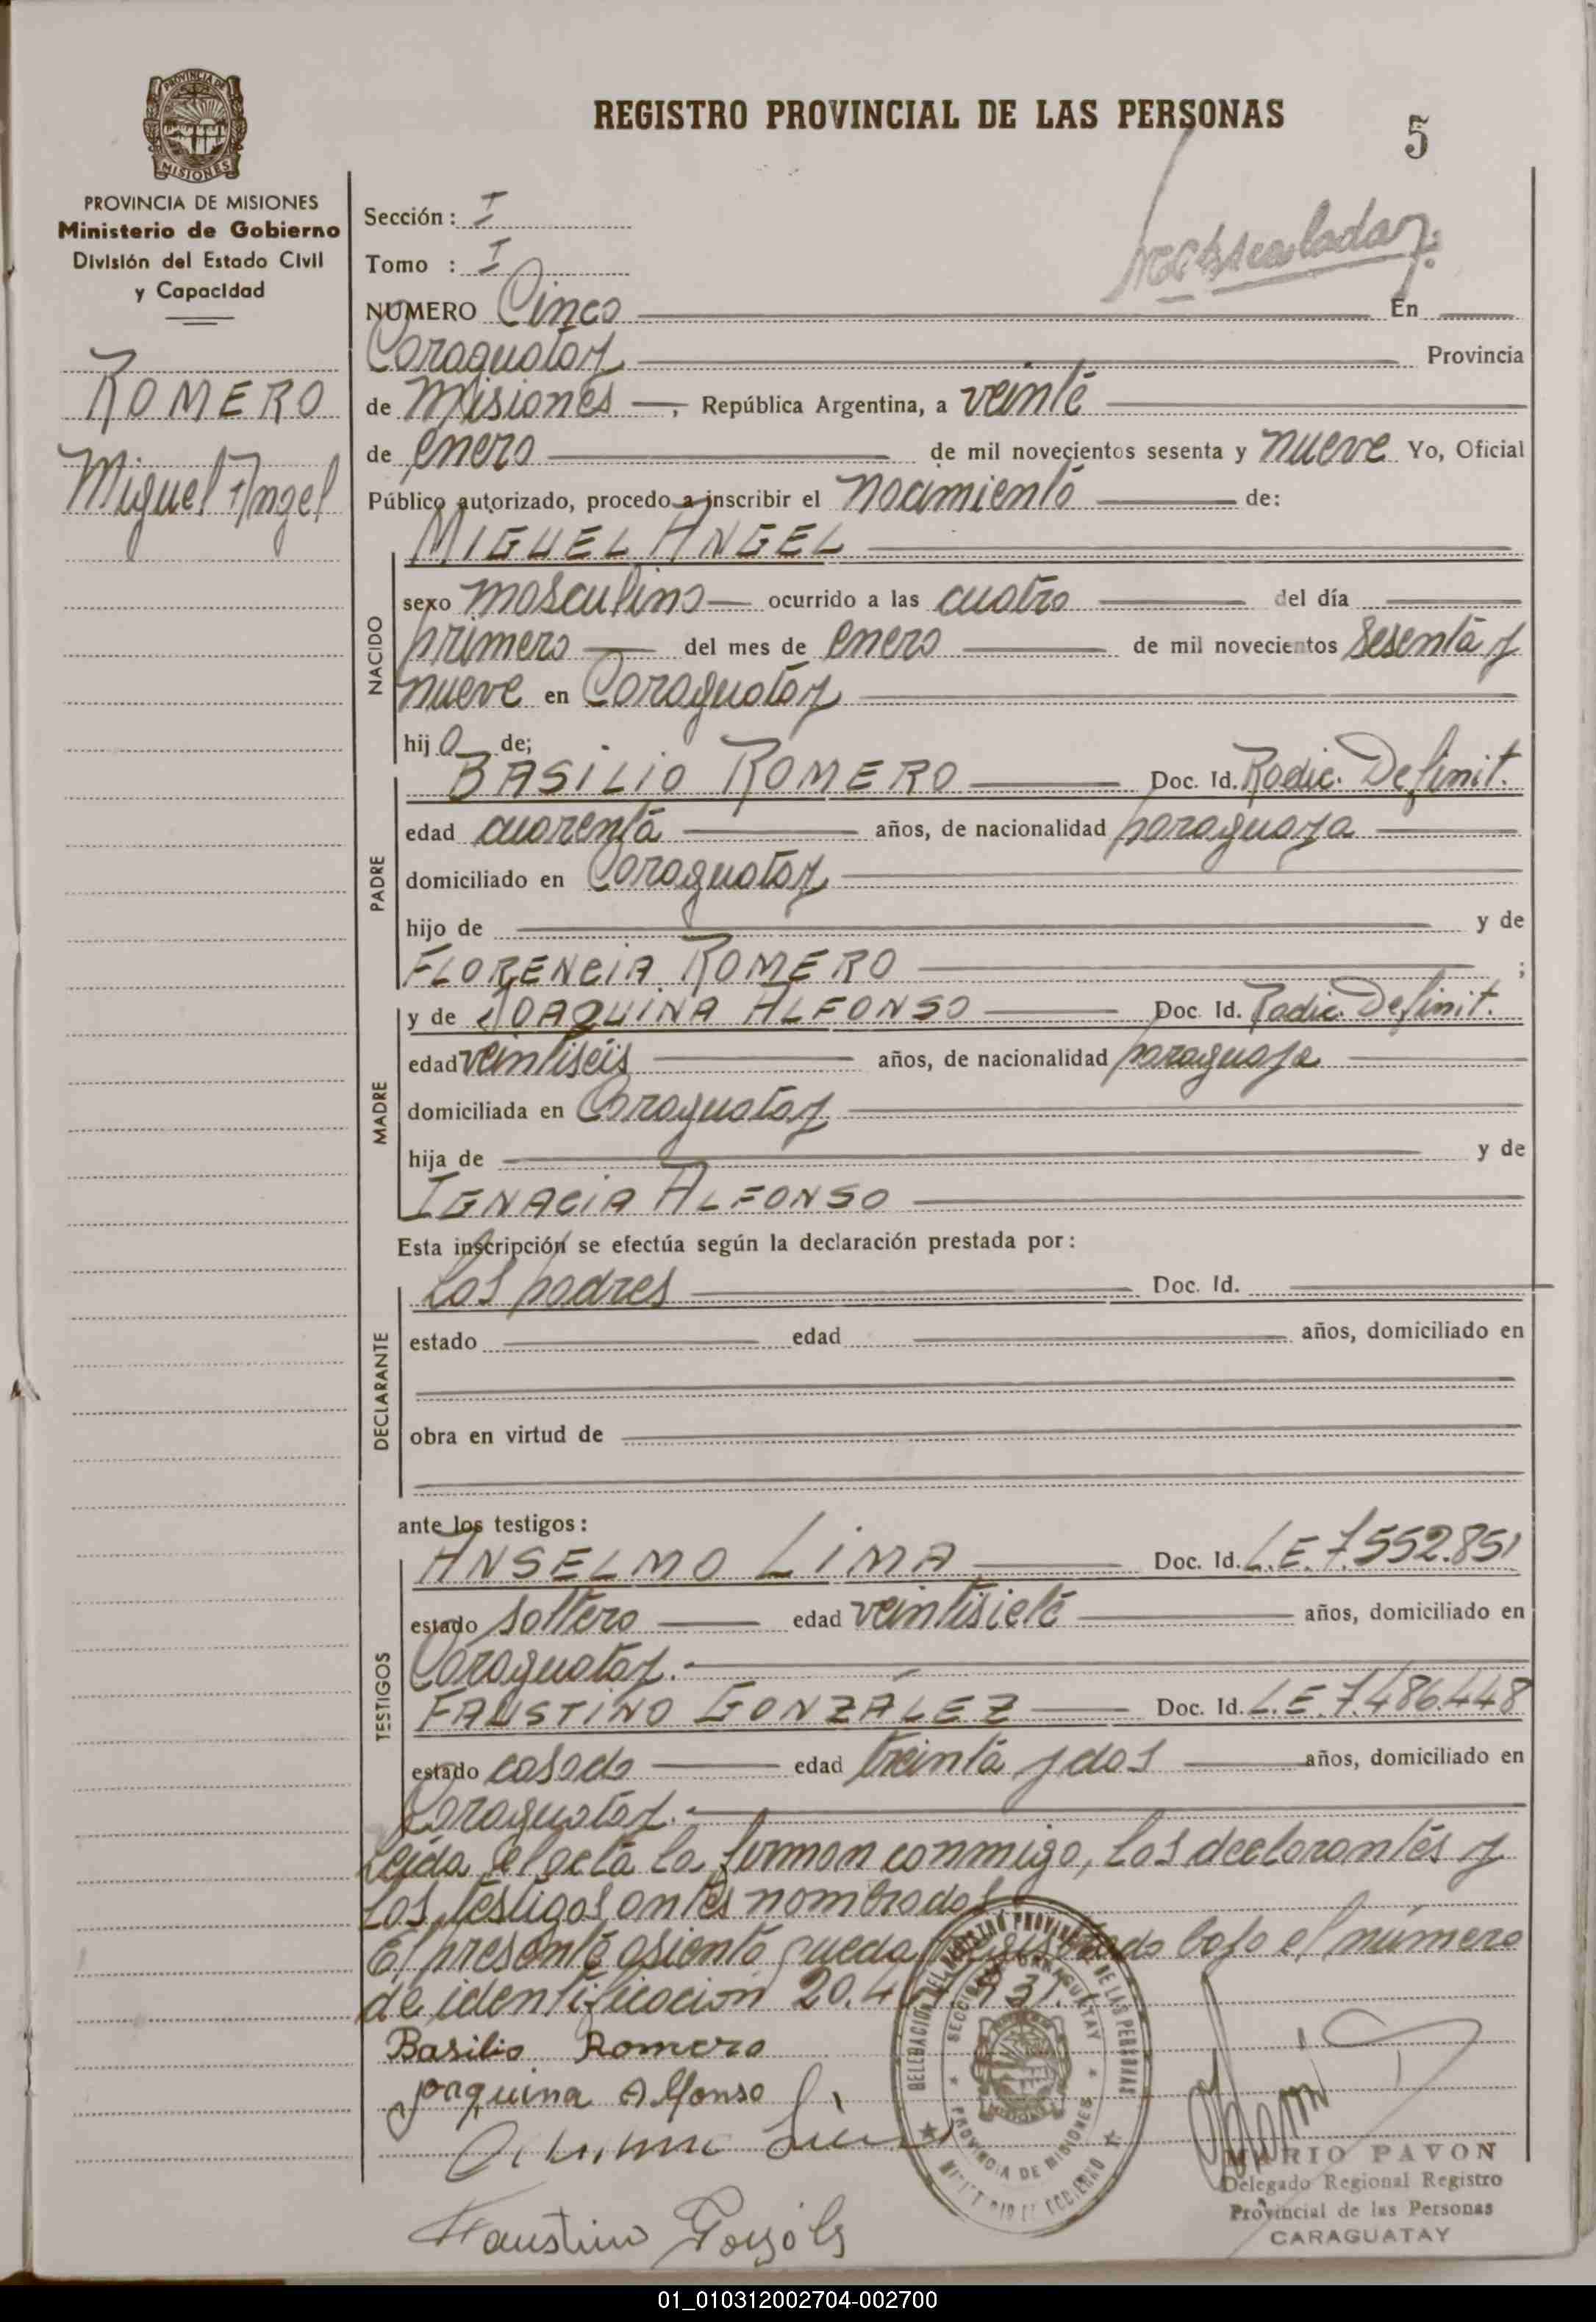 REGISTRO PROVINCIAL DE LAS PERSONAS
5
PROVINCIA DE MISIONES
PROVINCIA DE MISIONES
Ministerio de Gobierno
División del Estado Civil
y Capacidad
ROMERO
Miguel Angel
Sección: I
Tomo : I
NUMERO Cinco En
Caraguatay Provincia
de Misiones, República Argentina, a veinte
de enero de mil novecientos sesenta y nueve Yo, Oficial
Público autorizado, procedo a inscribir el nacimiento de:
MIGUEL ANGEL
NACIDO
sexo masculino ocurrido a las cuatro del día
primero del mes de enero de mil novecientos sesenta y
nueve en Caraguatay
hijo de;
PADRE
BASILIO ROMERO Doc. Id. Radic. Definit.
edad cuarenta años, de nacionalidad paraguaya
domiciliado en Caraguatay
hijo de y de
FLORENCIA ROMERO ;
MADRE
y de JOAQUINA ALFONSO Doc. Id. Radic. Definit.
edad veintiseis años, de nacionalidad paraguaya
domiciliada en Caraguatay
hija de y de
IGNACIA ALFONSO
Esta inscripción se efectúa según la declaración prestada por:
DECLARANTE
Los padres Doc. Id.
estado edad años, domiciliado en
obra en virtud de
ante los testigos:
TESTIGOS
ANSELMO LIMA Doc. Id. L.E. 7.552.851
estado soltero edad veintisiete años, domiciliado en
Caraguatay.-
FAUSTINO GONZÁLEZ Doc. Id. L.E. 7.486.448
estado casado edad treinta y dos años, domiciliado en
Caraguatay.-
Leída el acta la firman conmigo, los declarantes y
los testigos antes nombrados
El presente asiento queda registrado bajo el número
de identificación
Basilio Romero
Joaquina Alfonso
Faustino
DELEGACION DEL REGISTRO PROVINCIAL DE LAS PERSONAS
SECCION CARAGUATAY
PROVINCIA DE MISIONES
MINISTERIO DE GOBIERNO
MARIO PAVON
Delegado Regional Registro
Provincial de las Personas
CARAGUATAY
01_010312002704-002700